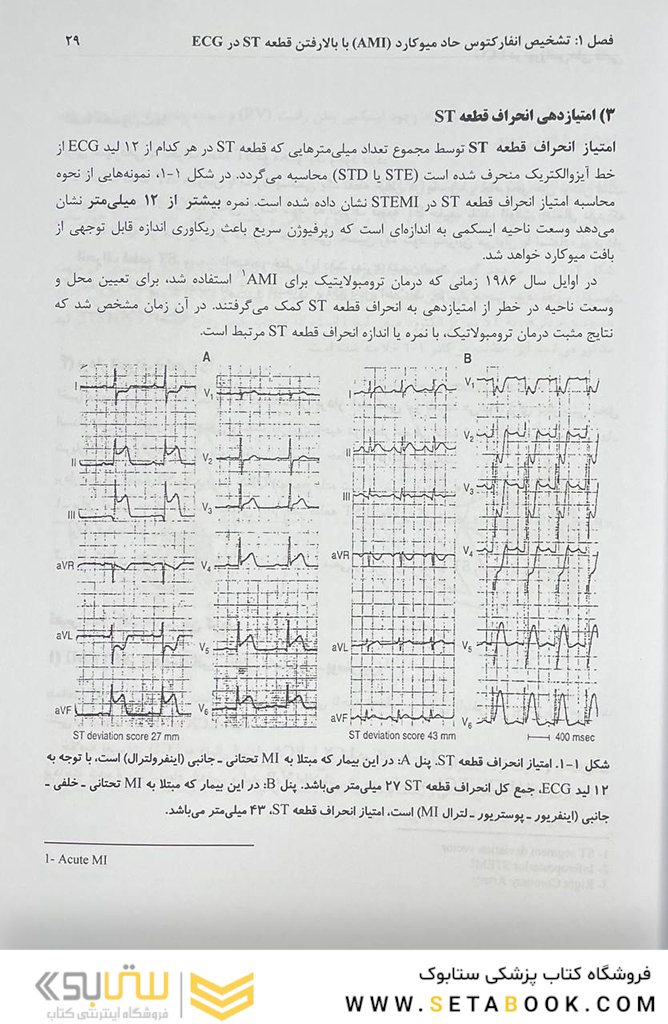 فصل ۱: تشخیص انفارکتوس حاد میوکارد (AMI) با بالارفتن قطعه ST در ECG ۲۹
۳) امتیازدهی انحراف قطعه ST
امتیاز انحراف قطعه ST توسط مجموع تعداد میلی‌مترهایی که قطعه ST در هر کدام از ۱۲ لید ECG از
خط آیزوالکتریک منحرف شده است (STE یا STD) محاسبه می‌گردد. در شکل ۱-۱، نمونه‌هایی از نحوه
محاسبه امتیاز انحراف قطعه ST در STEMI نشان داده شده است. نمره بیشتر از ۱۲ میلی‌متر نشان
می‌دهد وسعت ناحیه ایسکمی به اندازه‌ای است که رپرفیوژن سریع باعث ریکاوری اندازه قابل توجهی از
بافت میوکارد خواهد شد.
در اوایل سال ۱۹۸۶ زمانی که درمان ترومبولایتیک برای AMI۱ استفاده شد، برای تعیین محل و
وسعت ناحیه در خطر از امتیازدهی به انحراف قطعه ST کمک می‌گرفتند. در آن زمان مشخص شد که
نتایج مثبت درمان ترومبولاتیک، با نمره یا اندازه انحراف قطعه ST مرتبط است.
A
B
I
II
III
aVR
aVL
aVF
V1
V2
V3
V4
V5
V6
ST deviation score 27 mm
I
II
III
aVR
aVL
aVF
V1
V2
V3
V4
V5
V6
ST deviation score 43 mm
400 msec
شکل ۱-۱. امتیاز انحراف قطعه ST. پنل A: در این بیمار که مبتلا به MI تحتانی ـ جانبی (اینفرولترال) است، با توجه به
۱۲ لید ECG، جمع کل انحراف قطعه ST ۲۷ میلی‌متر می‌باشد. پنل B: در این بیمار که مبتلا به MI تحتانی ـ خلفی ـ
جانبی (اینفریور ـ پوستریور ـ لترال MI) است، امتیاز انحراف قطعه ST، ۴۳ میلی‌متر می‌باشد.
1- Acute MI
فروشگاه کتاب پزشکی ستابوک
WWW.SETABOOK.COM
ستابوک
فروشگاه اینترنتی کتاب